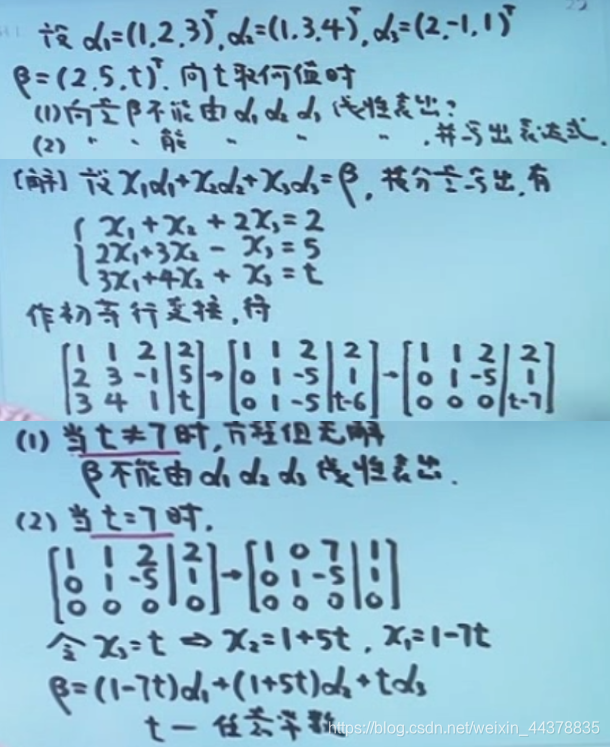 设 α₁=(1,2,3)ᵀ, α₂=(1,3,4)ᵀ, α₃=(2,-1,1)ᵀ
β=(2,5,t)ᵀ. 问t取何值时
(1)向量β不能由α₁ α₂ α₃ 线性表出?
(2) 〃 〃 能 〃 〃 〃 , 并写出表达式.
[解] 设 x₁α₁+x₂α₂+x₃α₃=β, 按分量写出,有
x₁+x₂+2x₃=2
2x₁+3x₂-x₃=5
3x₁+4x₂+x₃=t
作初等行变换,得
[1 1 2|2] [1 1 2|2] [1 1 2|2]
[2 3 -1|5]→[0 1 -5|1]→[0 1 -5|1]
[3 4 1|t] [0 1 -5|t-6] [0 0 0|t-7]
(1) 当t≠7时,方程组无解
β不能由α₁ α₂ α₃ 线性表出.
(2) 当t=7时,
[1 1 2|2] [1 0 7|1]
[0 1 -5|1]→[0 1 -5|1]
[0 0 0|0] [0 0 0|0]
令 x₃=t ⇒ x₂=1+5t, x₁=1-7t
β=(1-7t)α₁+(1+5t)α₂+tα₃
t一任意常数
https://blog.csdn.net/weixin_44378835